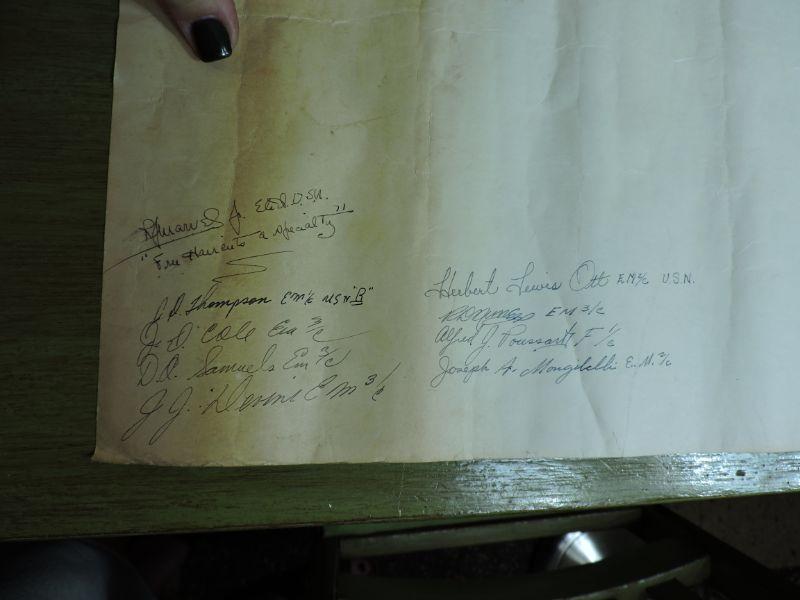 Jr.
"Free Haircuts a specialty"
J.D. Thompson EM 1/c U.S.N.R"
J.D. Cole Em 3/c
D.A. Samuels Em 3/c
J.J. Devine E m 3/c
Herbert Lewis Ott E.M 2/c U.S.N.
EM 3/c
Alfred J. Poussart F 1/c
Joseph A. Mongibelli E.M. 3/c